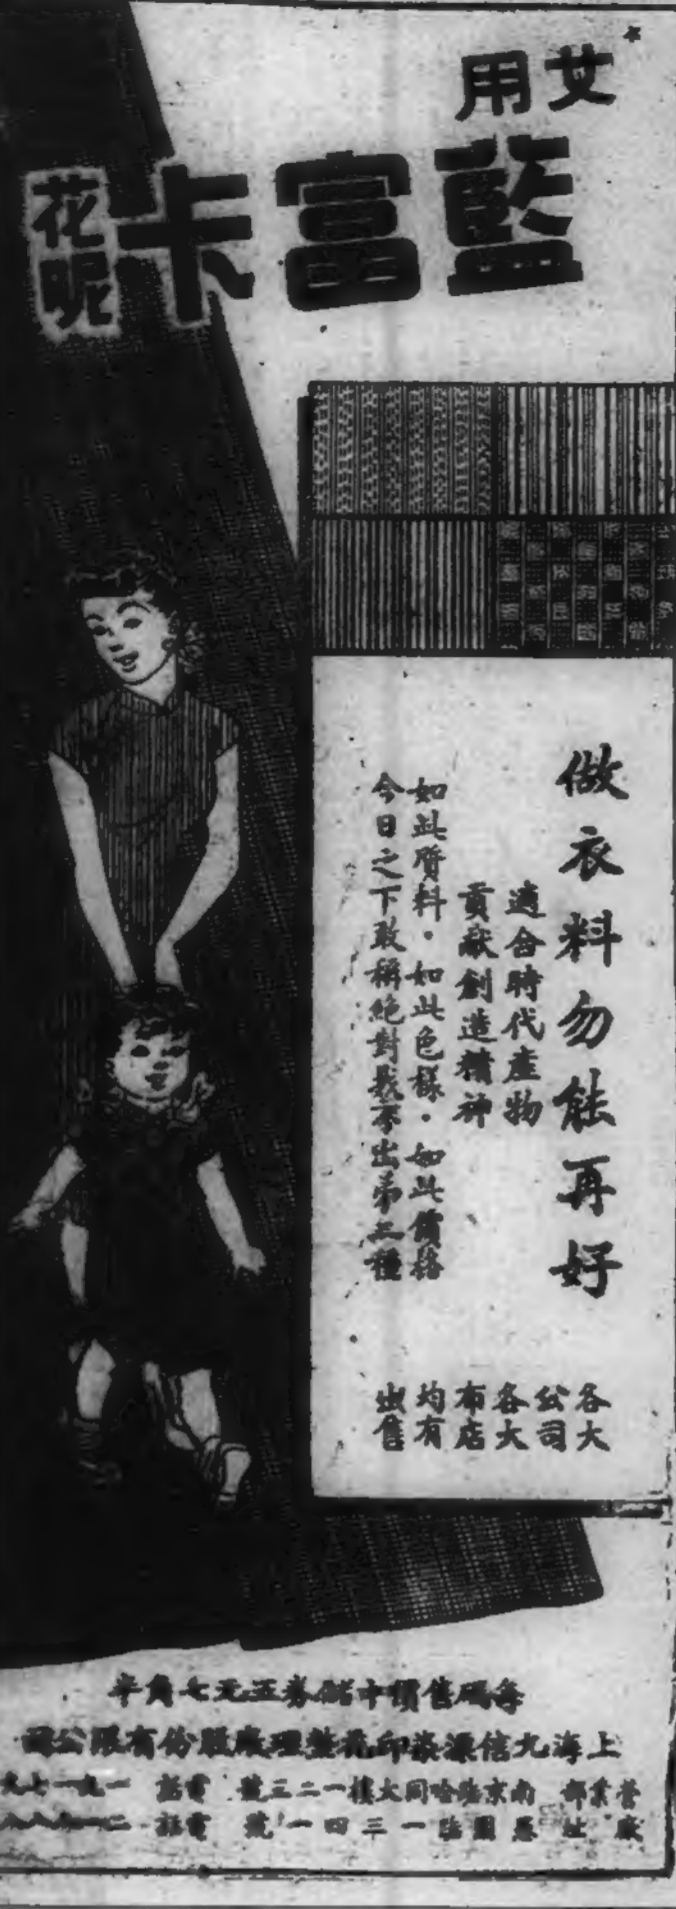 女用
藍富卡
花呢
做衣料勿能再好
適合時代產物
貢獻創造精神
如此質料·如此色樣·如此價格
今日之下敢稱絕對找不出第二種
各大
公司
各大
布店
均有
出售
每碼售價中儲券五元七角半
上海九信漂染印花整理廠股份有限公司
營業部 南京路哈同大樓一二三號 電話
廠址 路一三四一號 電話